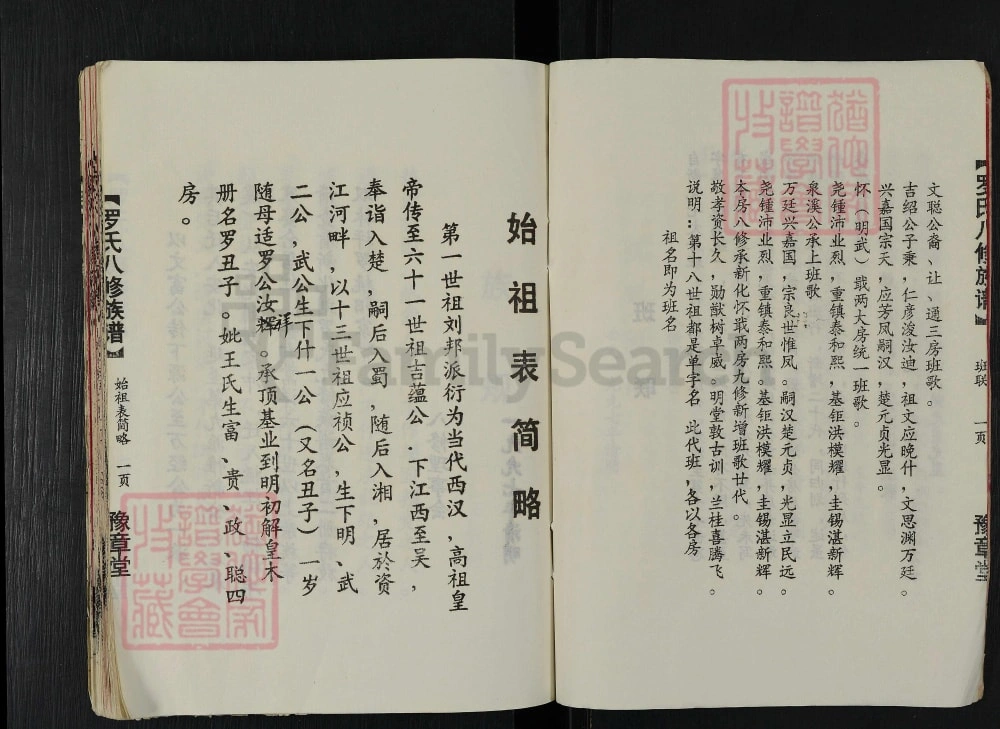 【罗氏八修族谱】
班联
一页
豫章堂
文聪公裔、让、通三房班歌。
吉绍公子秉，仁彦浚汝迪，祖文应晚什，文思渊万廷。
兴嘉国宗天，应芳凤嗣汉，楚元贞光显。
怀（明武）戢两大房统一班歌。
尧锺沛业烈，重镇泰和熙。基钜洪模耀，圭锡湛新辉。
泉溪公承上班歌
万廷兴嘉国，宗良世惟凤。嗣汉楚元贞，光显立民远。
尧锺沛业烈，重镇泰和熙。基钜洪模耀，圭锡湛新辉。
本房八修承新化怀戢两房九修新增班歌廿代。
敬孝资长久，勋猷树卓威。明堂敦古训，兰桂喜腾飞。
说明：第十八世祖都是单字名，此代班，各以各房
祖名即为班名
始祖表简略
第一世祖刘邦派衍为当代西汉，高祖皇
帝传至六十一世祖吉蕴公．下江西至吴，
奉诣入楚，嗣后入蜀，随后入湘，居於资
江河畔，以十三世祖应祯公，生下明、武
二公，武公生下什一公（又名丑子）一岁
随母适罗公汝辉。承顶基业到明初解皇木
祥
册名罗丑子。妣王氏生富、贵、政、聪四
房。
【罗氏八修族谱】
始祖表简略
一页
豫章堂
FamilySearch